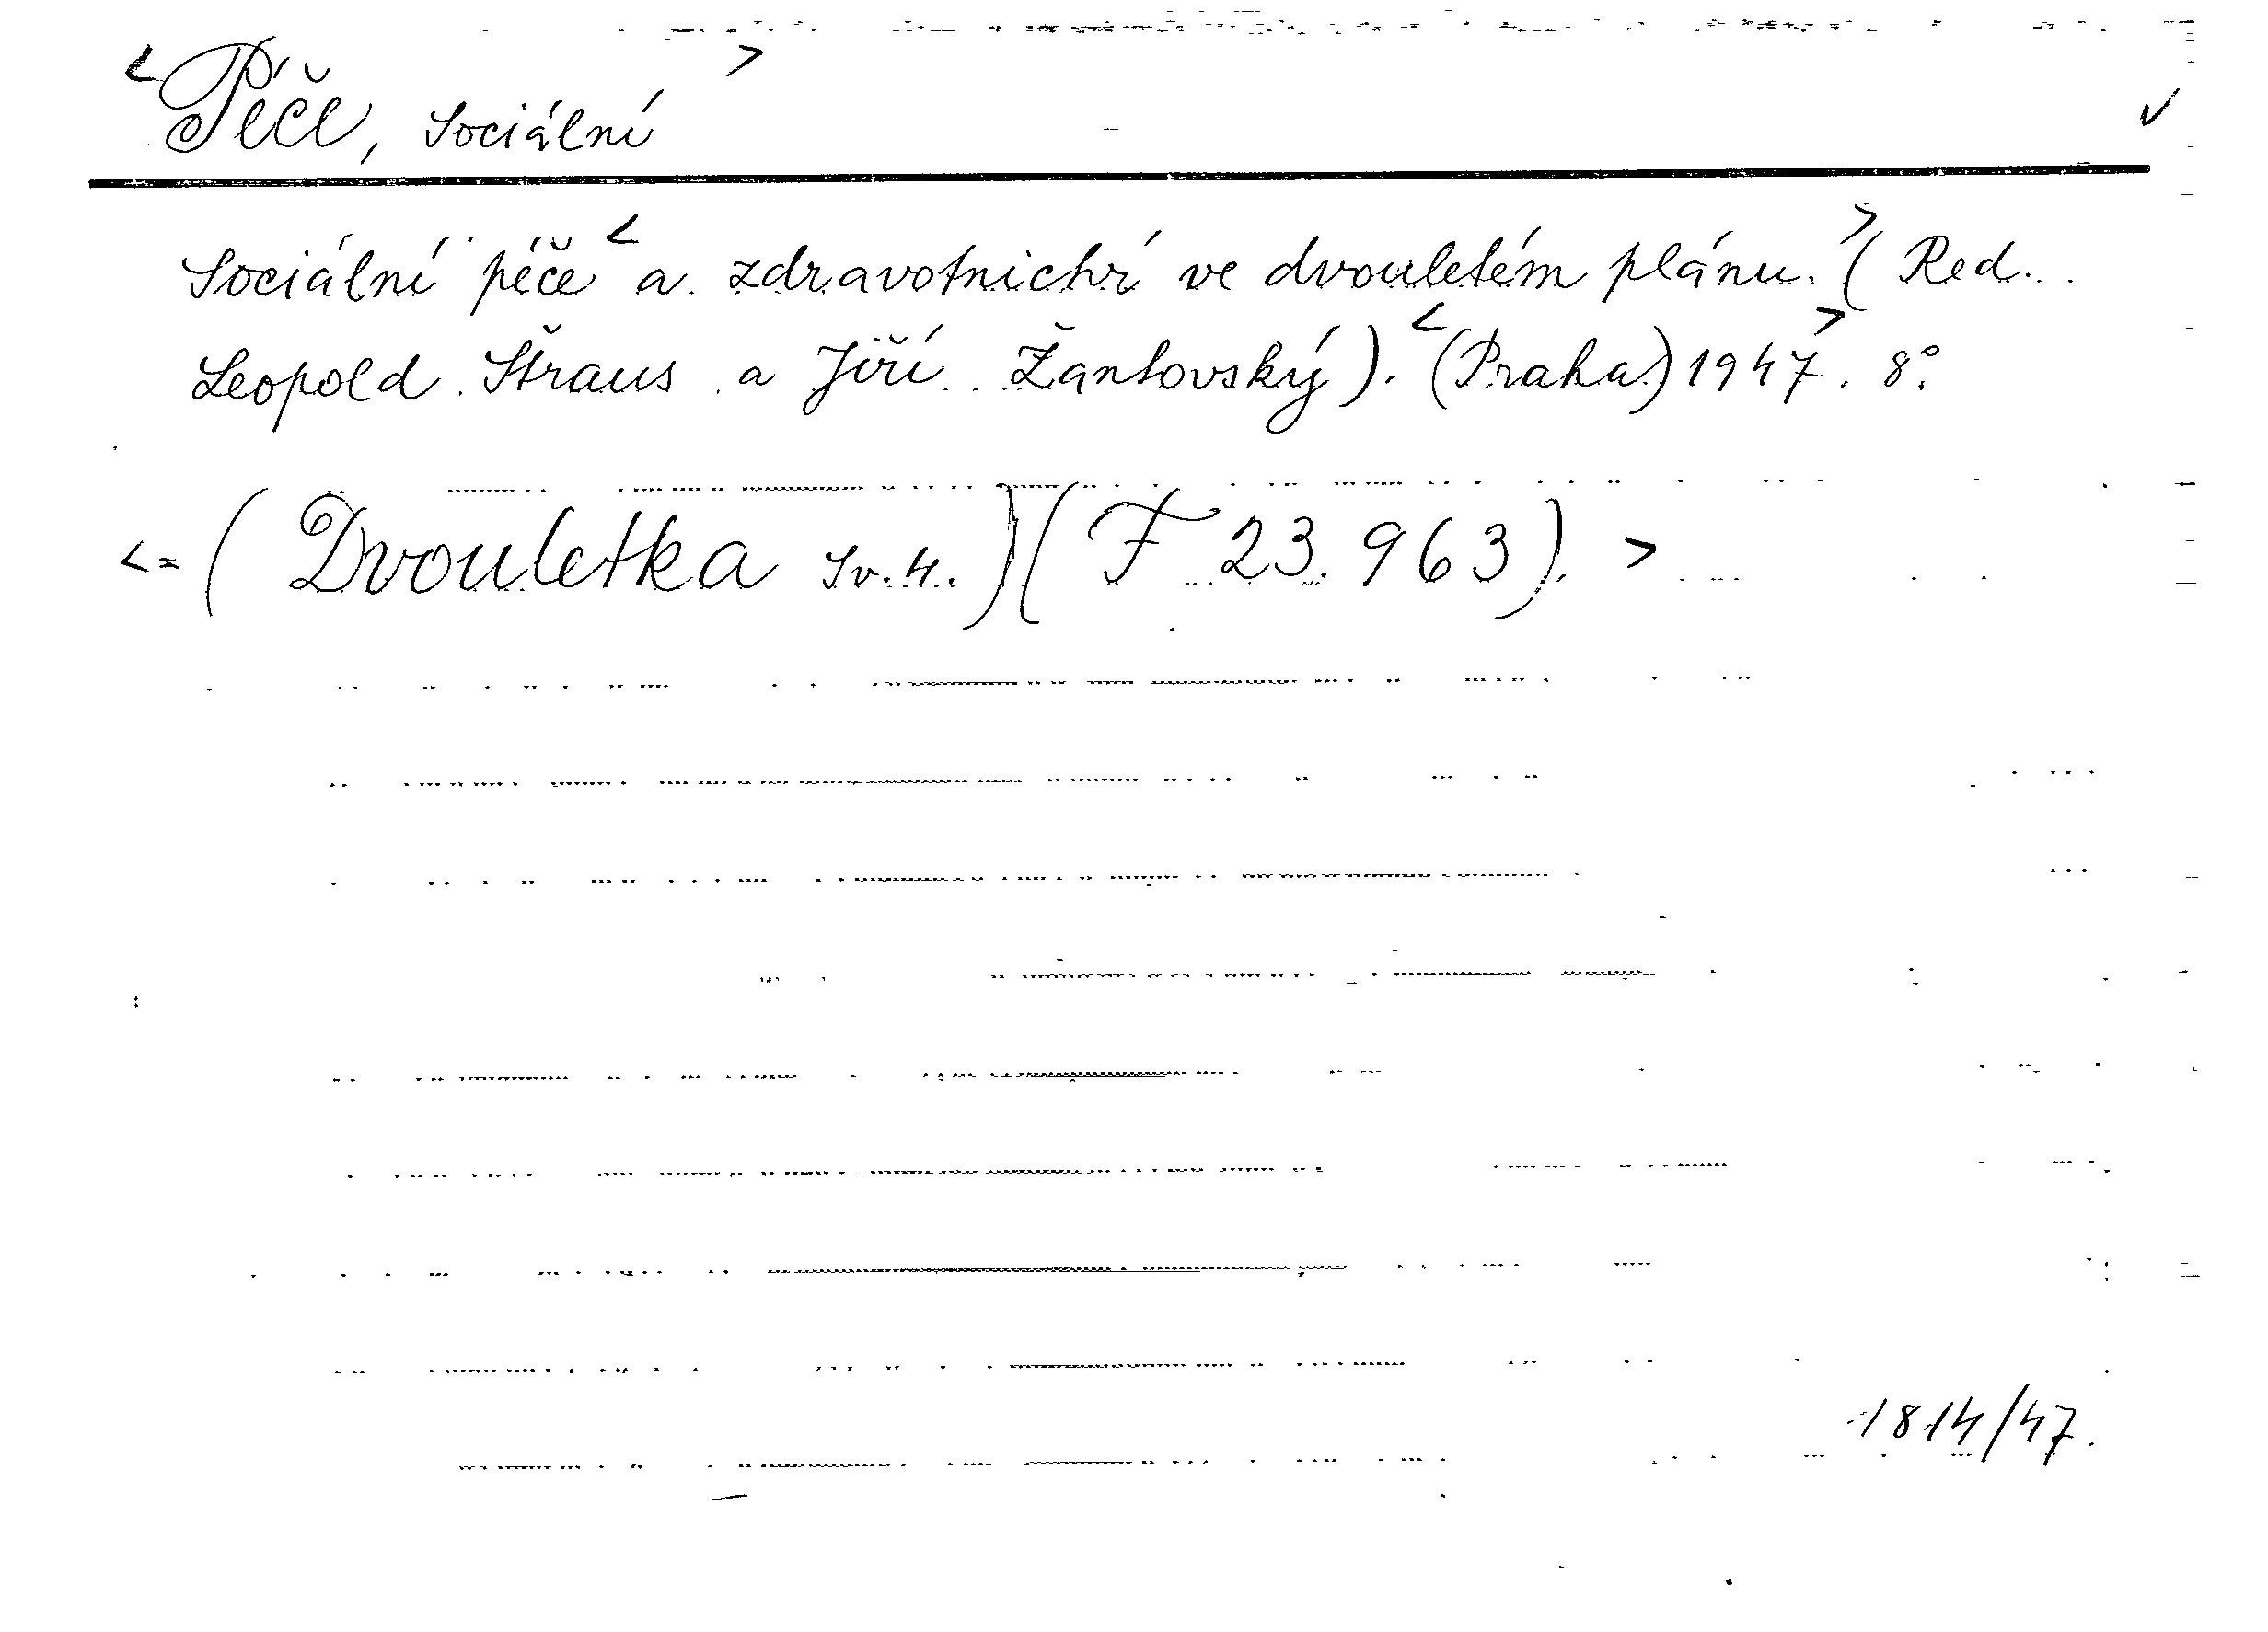 <Péče, sociální> ✓
Sociální péče < a zdravotnictví ve dvouletém plánu.> (Red.
Leopold Straus a Jiří Žantovský). <(Praha) 1947>. 8°.
<= (Dvouletka sv. 4.) (F 23.963). >
1814/47.